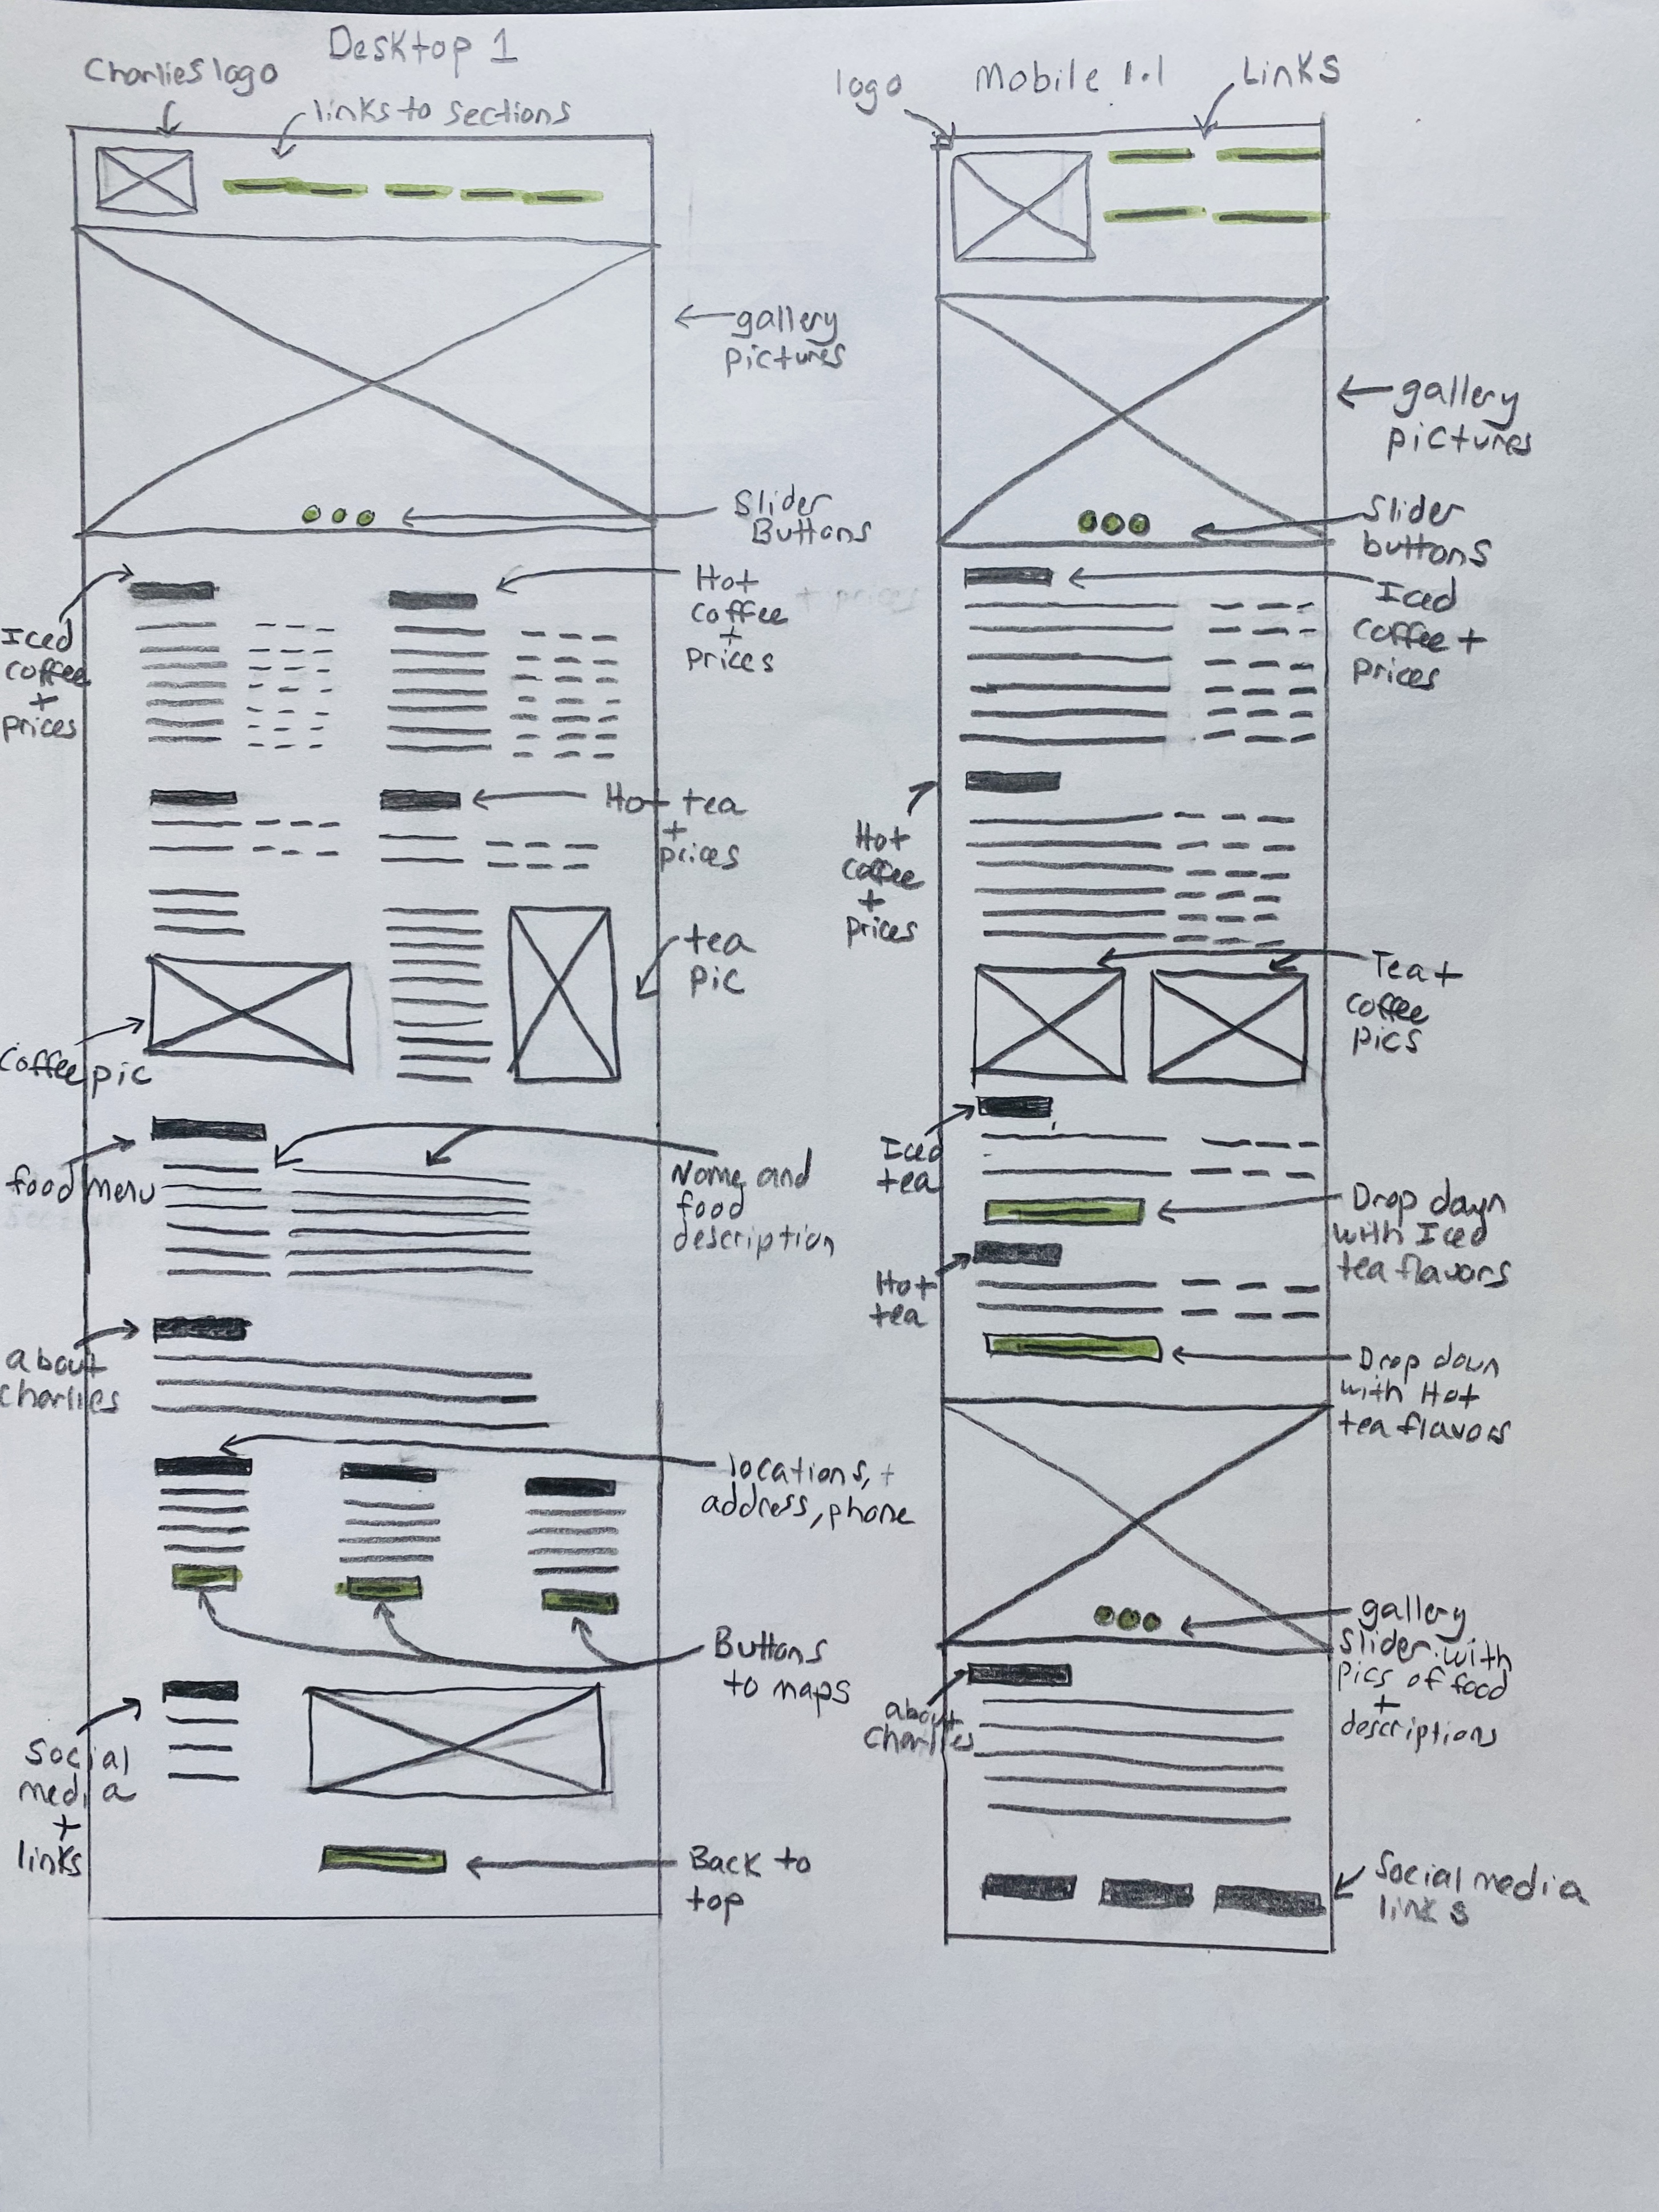 Desktop 1
Charlies logo
links to sections
gallery
pictures
Slider
Buttons
Iced
coffee
+
prices
Hot
coffee
+
prices
Hot tea
+
prices
tea
pic
coffee pic
food menu
Name and
food
description
about
charlies
locations, +
address, phone
Buttons
to maps
Social
media
+
links
Back to
top
Mobile 1.1
logo
Links
gallery
pictures
Slider
buttons
Iced
coffee +
prices
Hot
coffee
+
prices
Tea +
coffee
pics
Iced
tea
Drop down
with Iced
tea flavors
Hot
tea
Drop down
with Hot
tea flavors
gallery
slider with
pics of food
+
descriptions
about
charlies
Social media
links